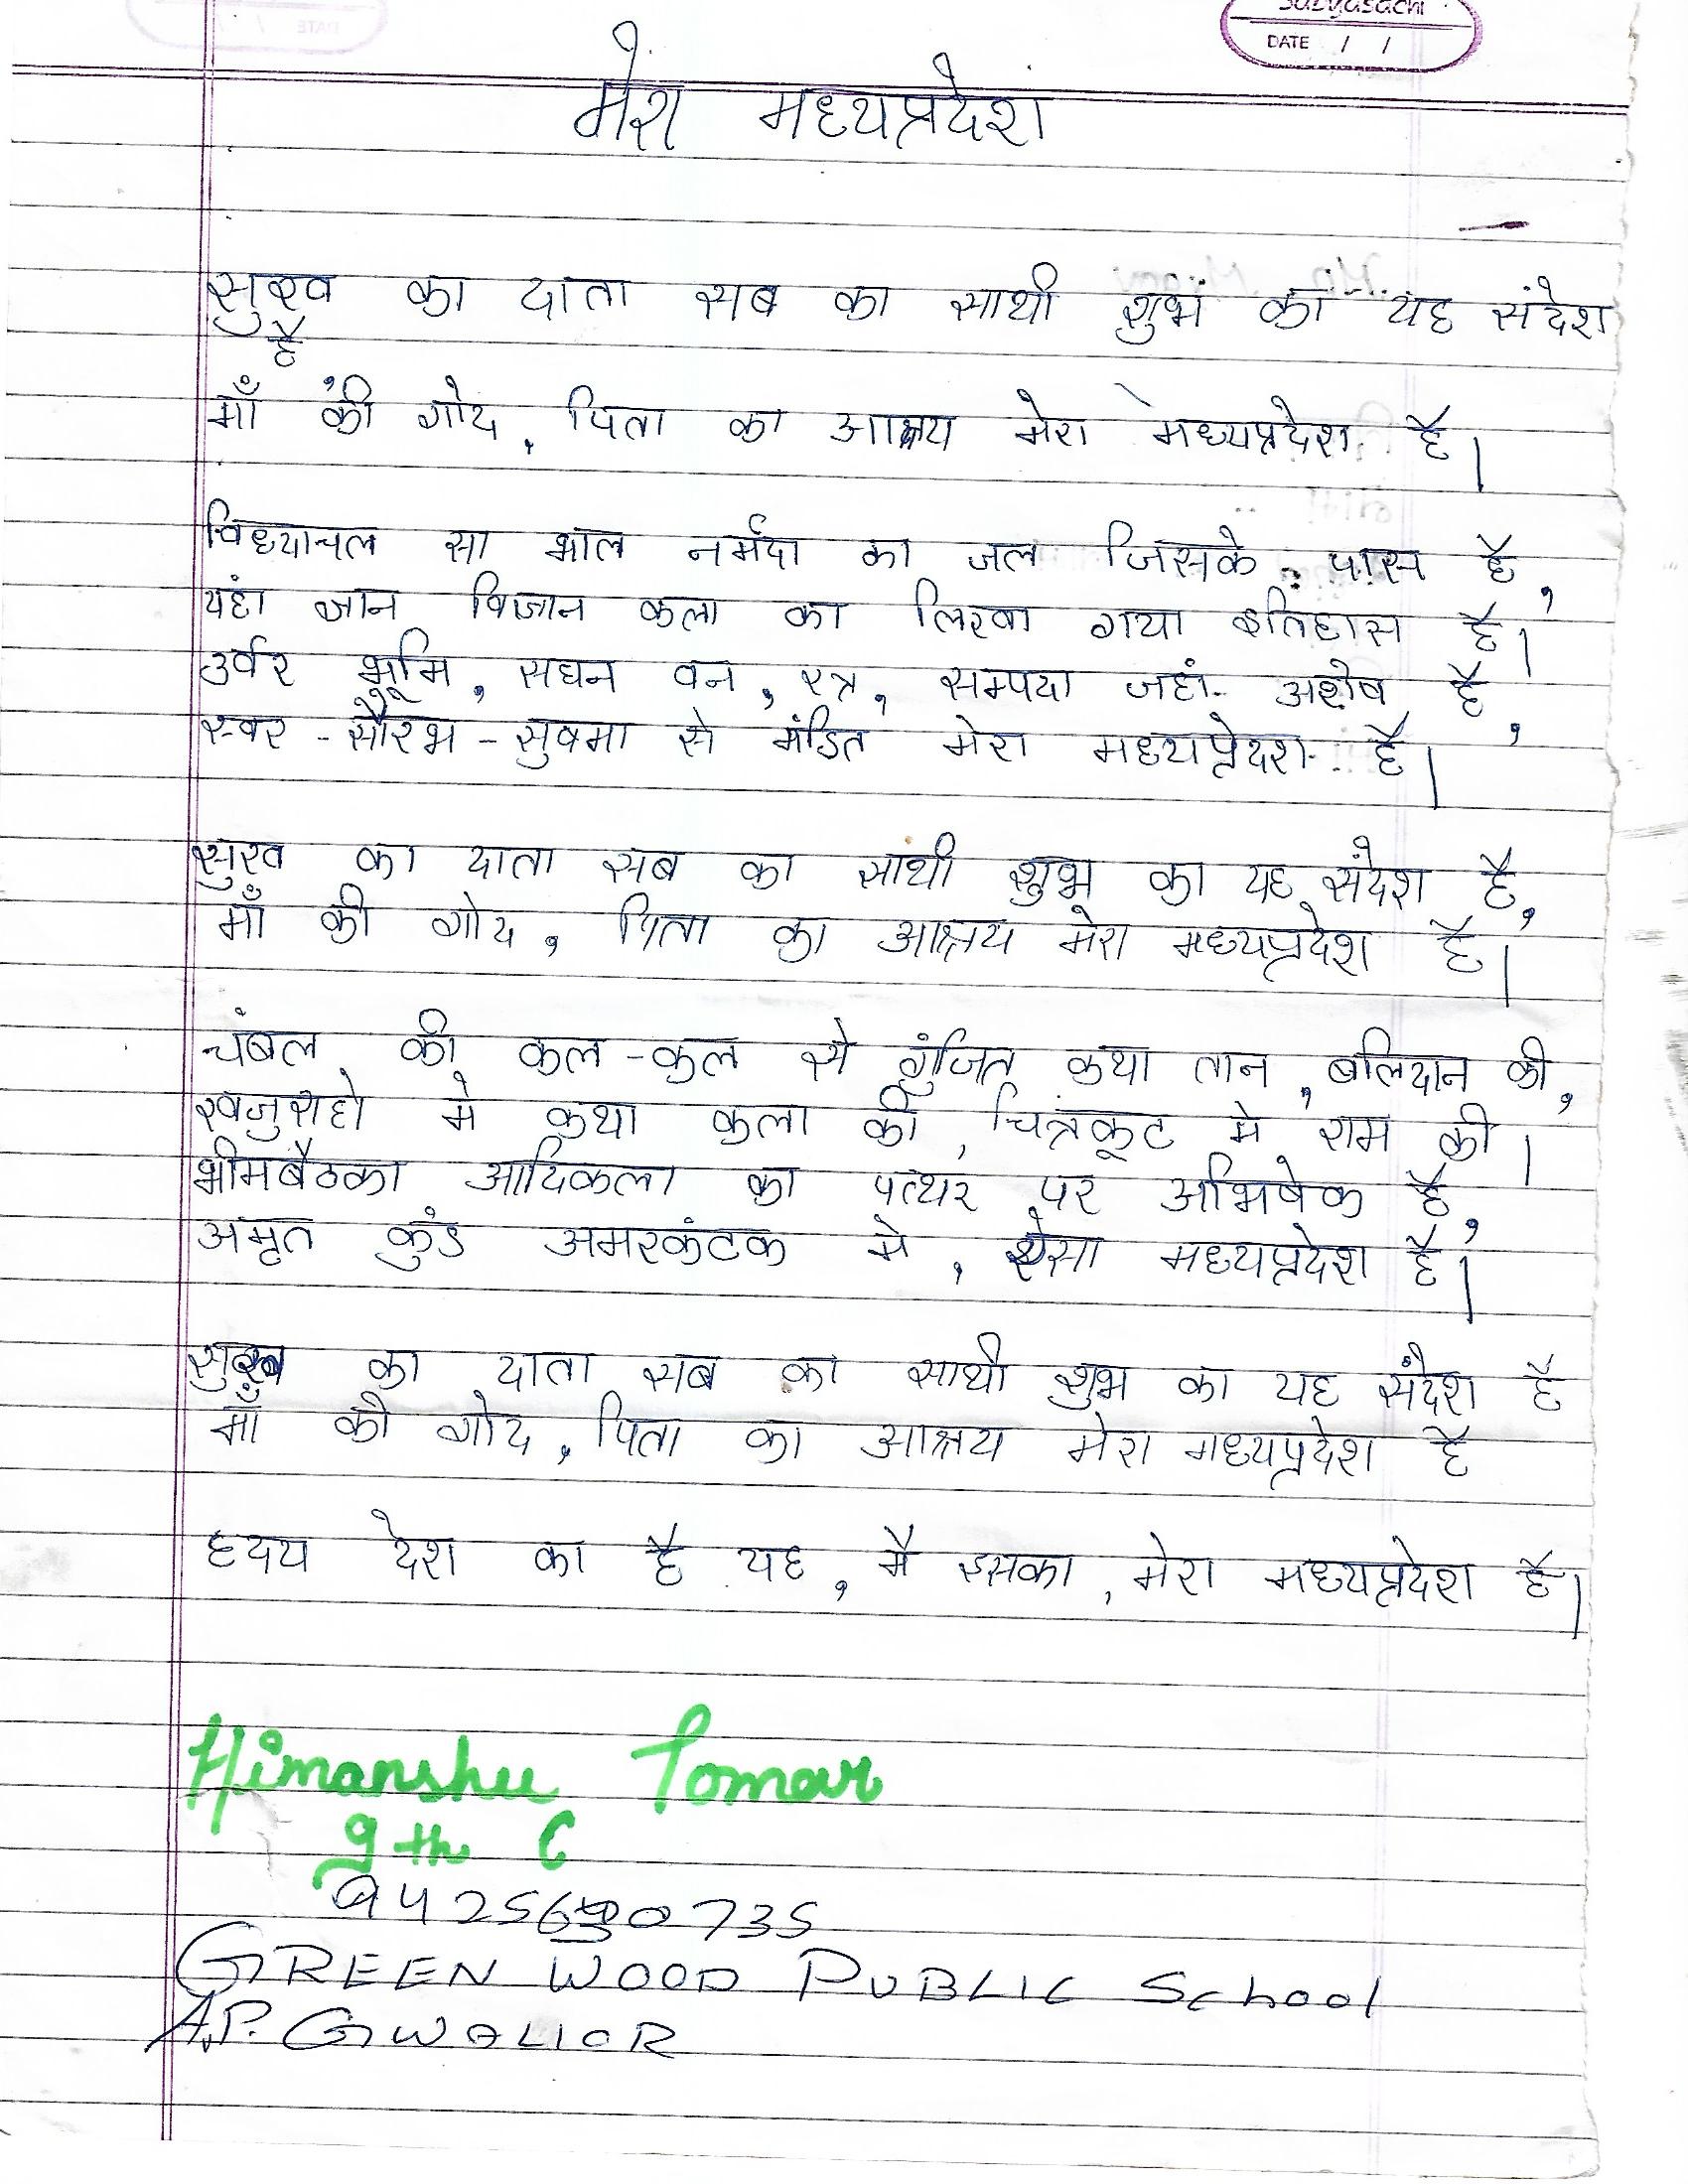 Sabyasachi
DATE / /
मेरा मध्यप्रदेश
सुख का दाता सब का साथी शुभ का यह संदेश
है,
माँ की गोद, पिता का आश्रय मेरा मध्यप्रदेश है।
विंध्याचल सा भाल नर्मदा का जल जिसके पास है,
यहां ज्ञान विज्ञान कला का लिखा गया इतिहास है।
उर्वर भूमि, सघन वन, रत्न, सम्पदा जहां अशेष है,
स्वर-सौरभ-सुषमा से मंडित मेरा मध्यप्रदेश है।
सुख का दाता सब का साथी शुभ का यह संदेश है,
माँ की गोद, पिता का आश्रय मेरा मध्यप्रदेश है।
चंबल की कल-कल से गुंजित कथा तान, बलिदान की,
खजुराहो मे कथा कला की, चित्रकूट मे राम की।
भीमबैठका आदिकला का पत्थर पर अभिषेक है,
अमृत कुंड अमरकंटक मे, ऐसा मध्यप्रदेश है।
सुख का दाता सब का साथी शुभ का यह संदेश है
माँ की गोद, पिता का आश्रय मेरा मध्यप्रदेश है
हदय देश का है यह, मै इसका, मेरा मध्यप्रदेश है।
Himanshu Tomar
9th C
9425630735
GREEN WOOD PUBLIC School
A.P. GWALIOR